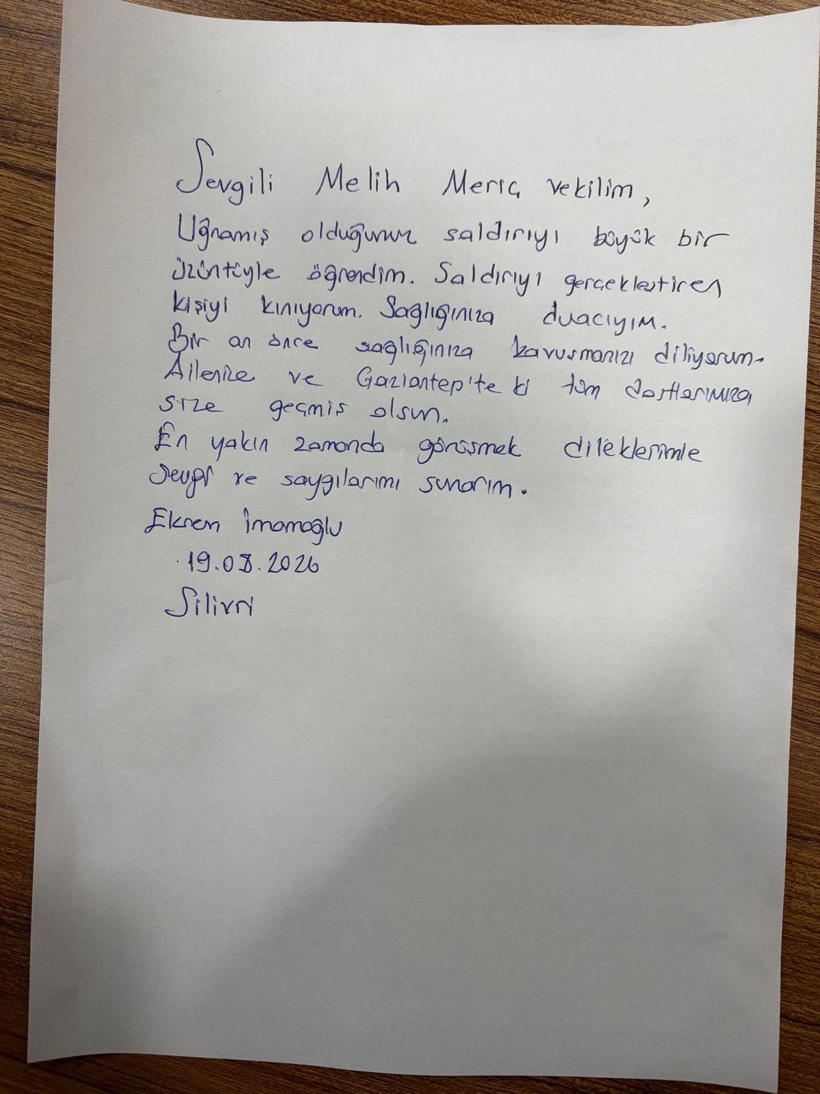 Sevgili Melih Meriç vekilim,
Uğramış olduğunuz saldırıyı büyük bir
üzüntüyle öğrendim. Saldırıyı gerçekleştiren
kişiyi kınıyorum. Sağlığınıza duacıyım.
Bir an önce sağlığınıza kavuşmanızı diliyorum.
Ailenize ve Gaziantep'te ki tüm dostlarımıza
size geçmiş olsun.
En yakın zamanda görüşmek dileklerimle
Sevgi ve saygılarımı sunarım.
Ekrem İmamoğlu
19.08.2026
Silivri